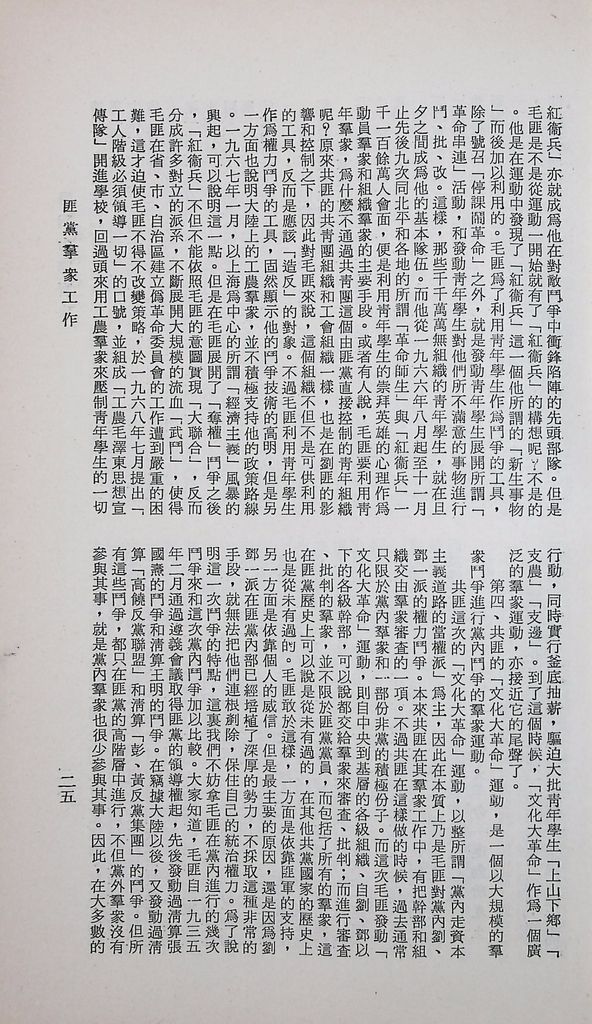 紅衞兵」亦就成爲他在對敵鬥爭中衝鋒陷陣的先頭部隊。但是
毛匪是不是從運動一開始就有了「紅衞兵」的構想呢?不是的
。他是在運動中發現了「紅衞兵」這一個他所謂的「新生事物
」而後加以利用的。毛匪爲了利用靑年學生作爲鬥爭的工具,
除了號召「停課鬧革命」之外,就是發動靑年學生展開所謂「
革命串連」活動,和發動靑年學生對他們所不滿意的事物進行
鬥、批、改。這樣,那些千千萬萬無組織的靑年學生,就在旦
夕之間成爲他的基本隊伍。而他從一九六六年八月起至十一月
止先後九次同北平和各地的所謂「革命師生」與「紅衞兵」一
千一百餘萬人會面,便是利用靑年學生的崇拜英雄的心理作爲
動員羣衆和組織羣衆的主要手段。或者有人說,毛匪要利用靑
年羣衆,爲什麼不通過共靑團這個由匪黨直接控制的靑年組織
呢?原來共匪的共靑團組織和工會組織一樣,也是在劉匪的影
響和控制之下,因此對毛匪來說,這個組織不但不是可供利用
的工具,反而是應該「造反」的對象。不過毛匪利用靑年學生
作爲權力鬥爭的工具,固然顯示他的鬥爭技術的高明,但是另
一方面也說明大陸上的工農羣衆,並不積極支持他的政策路線
。一九六七年一月,以上海爲中心的所謂「經濟主義」風暴的
興起,可以說明這一點。但是在毛匪展開了「奪權」鬥爭之後
,「紅衞兵」不但不能依照毛匪的意圖實現「大聯合」,反而
分成許多對立的派系,不斷展開大規模的流血「武鬥」,使得
毛匪在省、市、自治區建立僞革命委員會的工作遭到嚴重的困
難,這才迫使毛匪不得不改變策略,於一九六八年七月提出「
工人階級必須領導一切」的口號,並組成「工農毛澤東思想宣
傳隊」開進學校,回過頭來用工農羣衆來壓制靑年學生的一切
行動,同時實行釜底抽薪,驅迫大批靑年學生「上山下鄉」「
支農」「支邊」。到了這個時候,「文化大革命」作爲一個廣
泛的羣衆運動,亦接近它的尾聲了。
第四、共匪的「文化大革命」運動,是一個以大規模的羣
衆鬥爭進行黨內鬥爭的羣衆運動。
共匪這次的「文化大革命」運動,以整所謂「黨內走資本
主義道路的當權派」爲主,因此在本質上乃是毛匪對黨內劉、
鄧一派的權力鬥爭。本來共匪在其羣衆工作中,有把幹部和組
織交由羣衆審查的一項。不過共匪在這樣做的時候,過去通常
只限於黨內羣衆和一部份非黨的積極份子。而這次毛匪發動「
文化大革命」運動,則自中央到基層的各級組織、自劉、鄧以
下的各級幹部,可以說都交給羣衆來審查、批判;而進行審查
、批判的羣衆,並不限於匪黨黨員,而包括了所有的羣衆,這
在匪黨歷史上可以說是從未有過的,在其他共黨國家的歷史上
也是從未有過的。毛匪敢於這樣,一方面是依靠匪軍的支持,
另一方面是依靠個人的威信。但是最主要的原因,還是因爲劉
鄧一派在匪黨內部已經培植了深厚的勢力,不採取這種非常的
手段,就無法把他們連根剷除,保住自己的統治權力。爲了說
明這一次鬥爭的特點,這裏我們不妨拿毛匪在黨內進行的幾次
鬥爭來和這次黨內鬥爭加以比較。大家知道,毛匪自一九三五
年二月通過遵義會議取得匪黨的領導權起,先後發動過淸算張
國燾的鬥爭和淸算王明的鬥爭。在竊據大陸以後,又發動過淸
算「高饒反黨聯盟」和淸算「彭、黃反黨集團」的鬥爭。但所
有這些鬥爭,都只在匪黨的高階層中進行,不但黨外羣衆沒有
參與其事,就是黨內羣衆也很少參與其事。因此,在大多數的
匪黨羣衆工作
二五